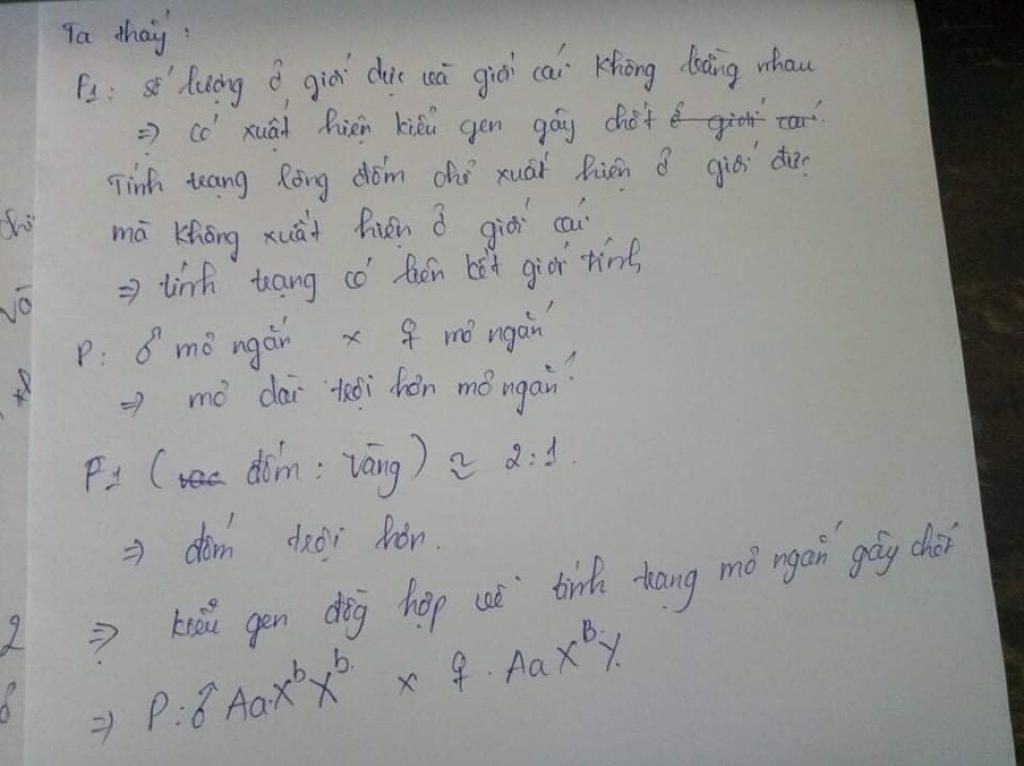 Ta thấy:
F1: số lượng ở giới đực và giới cái không bằng nhau
=> có xuất hiện kiểu gen gây chết ở giới cái.
Tính trạng lông đốm chỉ xuất hiện ở giới đực
mà không xuất hiện ở giới cái
=> tính trạng có liên kết giới tính
P: ♂ mỏ ngắn x ♀ mỏ ngắn
=> mỏ dài trội hơn mỏ ngắn
F1 (đốm : vàng) ≈ 2:1.
=> đốm trội hơn.
=> kiểu gen đồg hợp về tính trạng mỏ ngắn gây chết
=> P: ♂ Aa X^b X^b x ♀ Aa X^B Y.
2